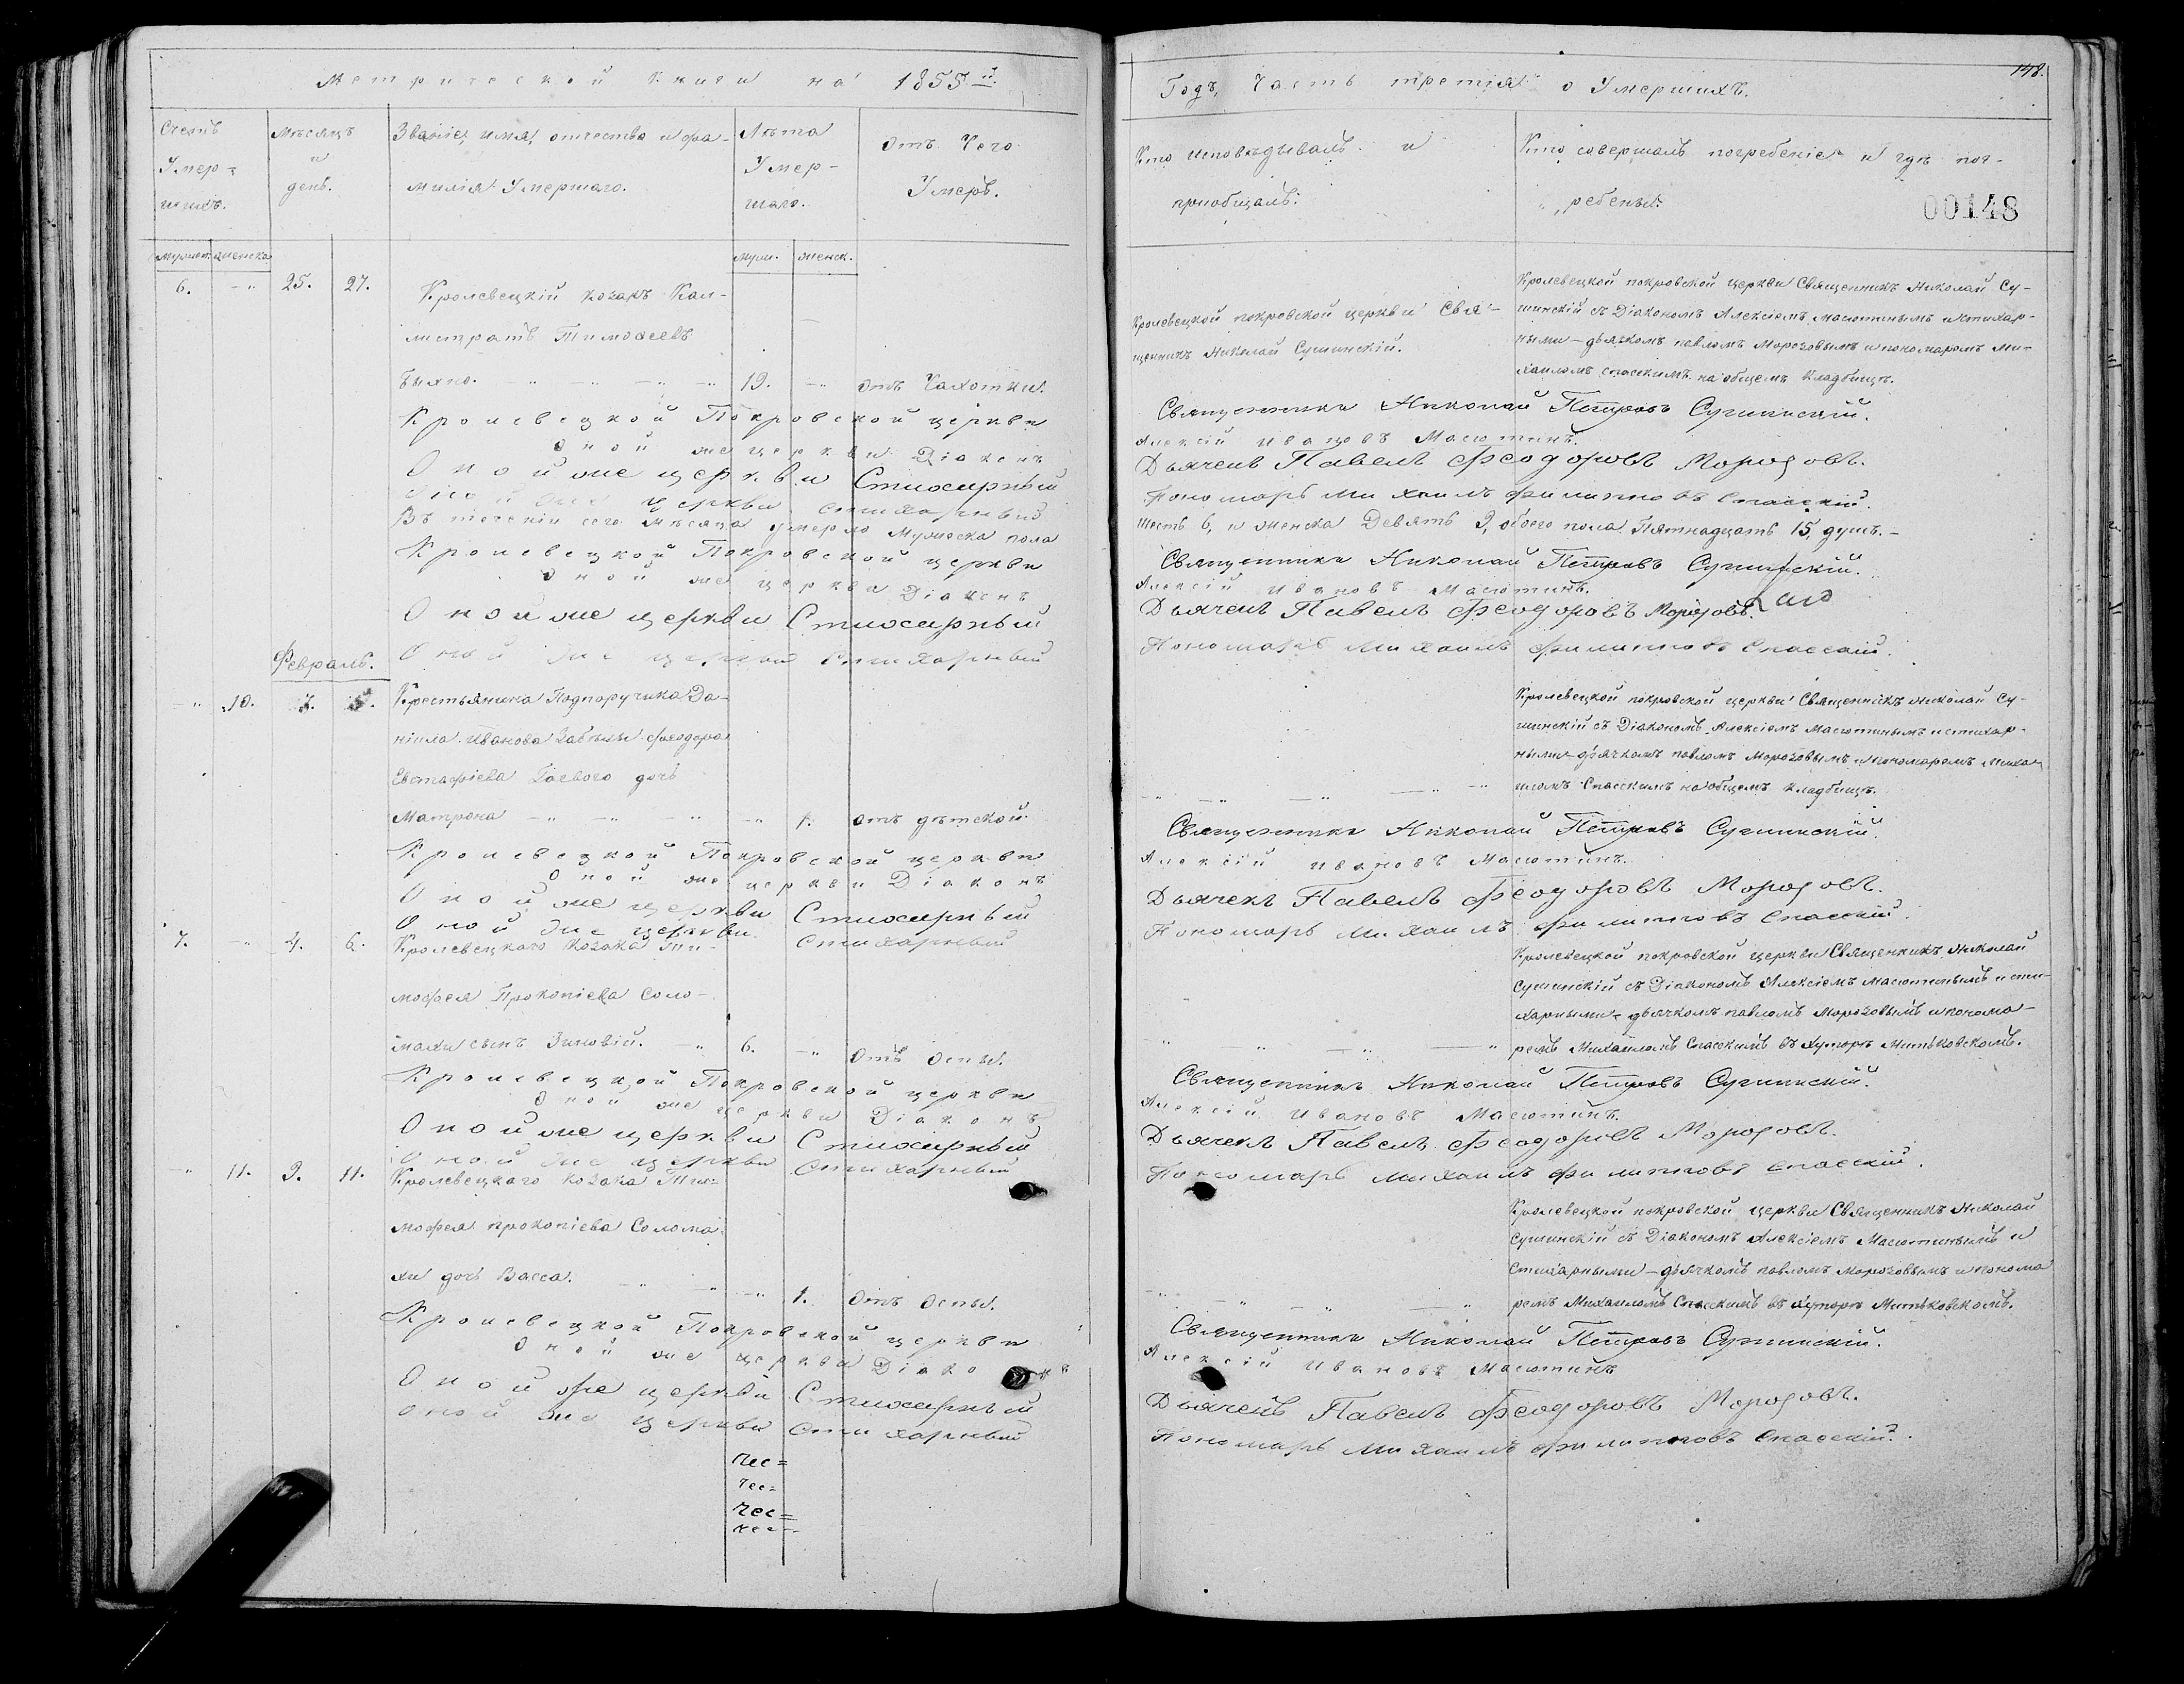 Метрической Книги на 1855й
Счетъ Умер-шихъ.
Мѣсяцъ и день.
Званіе, имя, отчество и фа-
милія Умершаго.
Лѣта Умер-шаго.
Отъ Чего Умеръ.
мужеск. женска.
муж. женск.
6. -„ 25. 27. Кролевецкій козакъ Кал-
листратъ Тимоѳеевъ
19. -„ отъ Чахотки.
Кролевецкой Покровской церкви
Оной же церкви Діаконъ
Оной же церкви Стихарный
Оной же церкви стихарный
Въ теченіи сего мѣсяца умерло Мужеска пола
Кролевецкой Покровской церкви
Оной же церкви Діаконъ
Оной же церкви Стихарный
Оной же церкви стихарный
Февраль.
-„ 10. 3. 5. Крестьянина Подпоручика Да-
ніила Иванова Ѳеодора
Евстафіева Гаевого дочь
Матрона -„ -„ -„ 1. отъ дѣтской.
Кролевецкой Покровской церкви
Оной же церкви Діаконъ
Оной же церкви Стихарный
Оной же церкви стихарный
7. -„ 4. 6. Кролевецкаго Козака Ти-
мофея Прокопіева Соло-
махи сынъ Зиновій. -„ 6. -„ отъ оспы.
Кролевецкой Покровской церкви
Оной же церкви Діаконъ
Оной же церкви Стихарный
Оной же церкви стихарный
-„ 11. 9. 11. Кролевецкаго козака Ти-
мофея прокопіева Солома-
хи дочь Васса. -„ -„ -„ 1. отъ оспы.
Кролевецкой Покровской церкви
Оной же церкви Діаконъ
Оной же церкви Стихарный
Оной же церкви стихарный
чес=
чес=
чес=
чес=
148.
Годъ, Часть третія о Умершихъ.
Кто исповѣдывалъ и
пріобщалъ.
Кто совершалъ погребеніе и гдѣ пог-
ребены.
00148
Кролевецкой покровской церкви Свя-
щенникъ Николай Сушинскій.
Кролевецкой покровской церкви Священникъ Николай Су-
шинскій съ Діакономъ Алексіемъ Масютинымъ и стихар-
ными-дьячкомъ павломъ Морозовымъ и пономаромъ Ми-
хаиломъ спасскимъ на общемъ кладбищѣ.
Священникъ Николай Петровъ Сушинскій.
Алексій Ивановъ Масютинъ.
Дьячекъ Павелъ Феодоровъ Морозовъ.
Пономарь Михаилъ Филипповъ Спасскій.
шесть 6, и женска Девять 9, обоего пола Пятнадцать 15, душъ.-
Священникъ Николай Петровъ Сушинскій.
Алексій Ивановъ Масютинъ.
Дьячекъ Павелъ Феодоровъ Морозовъ.
Пономарь Михаилъ Филипповъ Спасскій.
Кролевецкой покровской церкви Священникъ Николай Су-
шинскій съ Діакономъ Алексіемъ Масютинымъ и стихар-
ными-дьячкомъ павломъ Морозовымъ и пономаремъ Миха-
иломъ Спасскимъ на общемъ кладбищѣ.
Священникъ Николай Петровъ Сушинскій.
Алексій Ивановъ Масютинъ.
Дьячекъ Павелъ Феодоровъ Морозовъ.
Пономарь Михаилъ Филипповъ Спасскій.
Кролевецкой покровской церкви Священникъ Николай
Сушинскій съ Діакономъ Алексіемъ Масютинымъ и сти-
харными-дьячкомъ павломъ Морозовымъ и понома-
ремъ Михаиломъ Спасскимъ въ хуторѣ Митьковскомъ.
Священникъ Николай Петровъ Сушинскій.
Алексій Ивановъ Масютинъ.
Дьячекъ Павелъ Феодоровъ Морозовъ.
Пономарь Михаилъ Филипповъ Спасскій.
Кролевецкой покровской церкви Священникъ Николай
Сушинскій съ Діакономъ Алексіемъ Масютинымъ и
Стихарными-дьячкомъ павломъ Морозовымъ и понома
ремъ Михаиломъ Спасскимъ въ хуторѣ Митьковскомъ.
Священникъ Николай Петровъ Сушинскій.
Алексій Ивановъ Масютинъ
Дьячекъ Павелъ Феодоровъ Морозовъ.
Пономарь Михаилъ Филипповъ Спасскій.